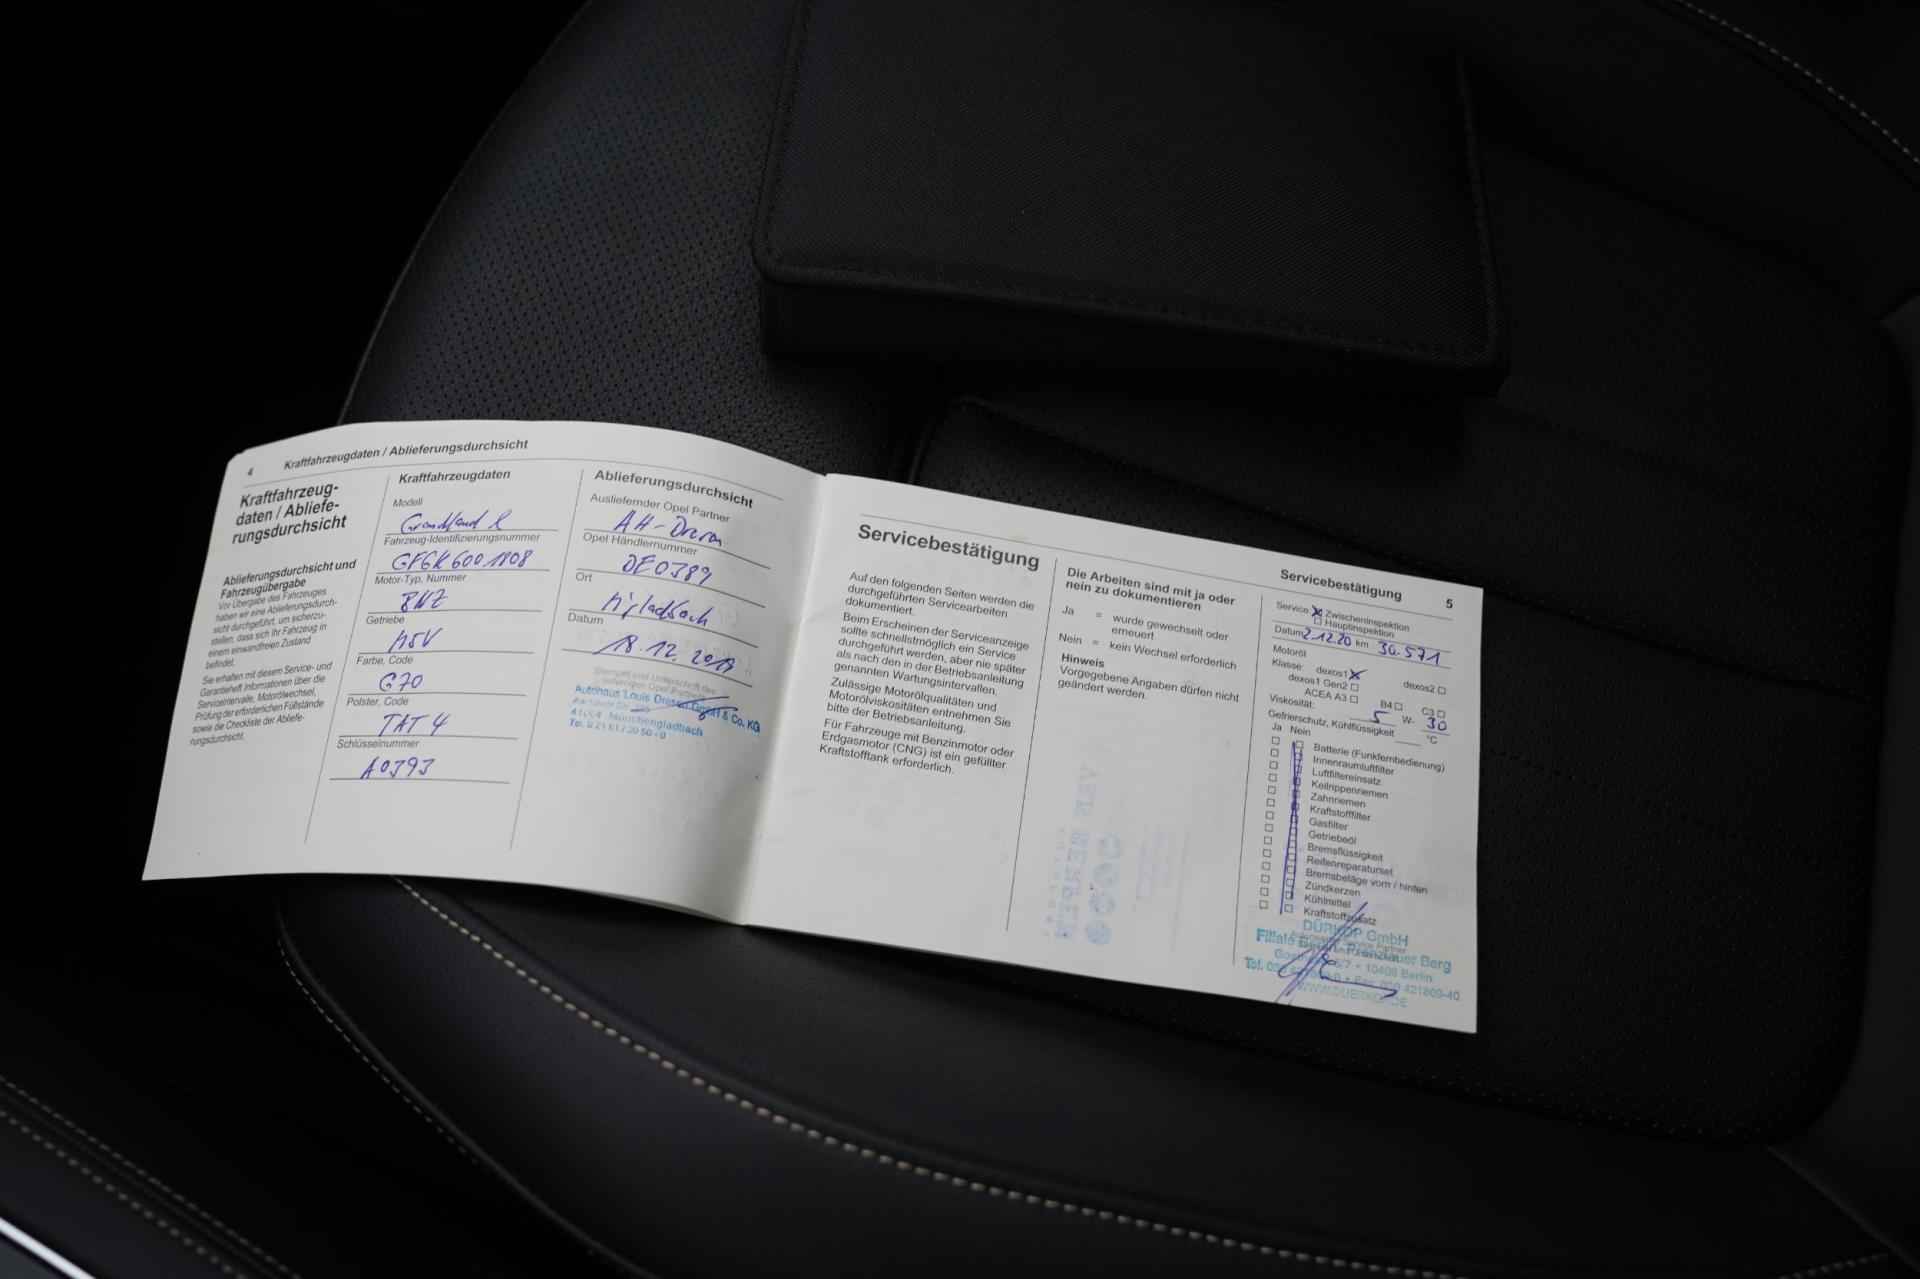 4 Kraftfahrzeugdaten / Ablieferungsdurchsicht
Kraftfahrzeug-
daten / Abliefe-
rungsdurchsicht
Ablieferungsdurchsicht und
Fahrzeugübergabe
Vor Übergabe des Fahrzeuges
haben wir eine Ablieferungsdurch-
sicht durchgeführt, um sicherzu-
stellen, dass sich Ihr Fahrzeug in
einem einwandfreien Zustand
befindet.
Sie erhalten mit diesem Service- und
Garantieheft Informationen über die
Serviceintervalle, Motorölwechsel,
Prüfung der erforderlichen Füllstände
sowie die Checkliste der Abliefe-
rungsdurchsicht.
Kraftfahrzeugdaten
Modell
Grandland X
Fahrzeug-Identifizierungsnummer
GFGK6001808
Motor-Typ, Nummer
Getriebe
Farbe, Code
G70
Polster, Code
TAT4
Schlüsselnummer
A0393
Ablieferungsdurchsicht
Ausliefernder Opel Partner
AH-Dresen
Opel Händlernummer
DE0389
Ort
M'gladbach
Datum
18.12.2019
Stempel und Unterschrift des
Autohaus Louis Dresen GmbH & Co. KG
41064 Mönchengladbach
Tel. 0 21 61 / 20 50 - 0
Servicebestätigung
Auf den folgenden Seiten werden die
durchgeführten Servicearbeiten
dokumentiert.
Beim Erscheinen der Serviceanzeige
sollte schnellstmöglich ein Service
durchgeführt werden, aber nie später
als nach den in der Betriebsanleitung
genannten Wartungsintervallen.
Zulässige Motorölqualitäten und
Motorölviskositäten entnehmen Sie
bitte der Betriebsanleitung.
Für Fahrzeuge mit Benzinmotor oder
Erdgasmotor (CNG) ist ein gefüllter
Kraftstofftank erforderlich.
Die Arbeiten sind mit ja oder
nein zu dokumentieren
Ja = wurde gewechselt oder
erneuert
Nein = kein Wechsel erforderlich
Hinweis
Vorgegebene Angaben dürfen nicht
geändert werden.
Servicebestätigung 5
Service Zwischeninspektion
Hauptinspektion
Datum 2.12.20 km 30.571
Motoröl
Klasse: dexos1 dexos2
dexos1 Gen2
ACEA A3 B4 C3
Viskosität: 5 W- 30
Gefrierschutz, Kühlflüssigkeit °C
Ja Nein
Batterie (Funkfernbedienung)
Innenraumluftfilter
Luftfiltereinsatz
Keilrippenriemen
Zahnriemen
Kraftstofffilter
Gasfilter
Getriebeöl
Bremsflüssigkeit
Reifenreparaturset
Bremsbeläge vorn / hinten
Zündkerzen
Kühlmittel
Kraftstoffzusatz
DÜRKOP GmbH
Filiale Berlin-Prenzlauer Berg
10409 Berlin
421809-40
WWW.DUERKOP.DE